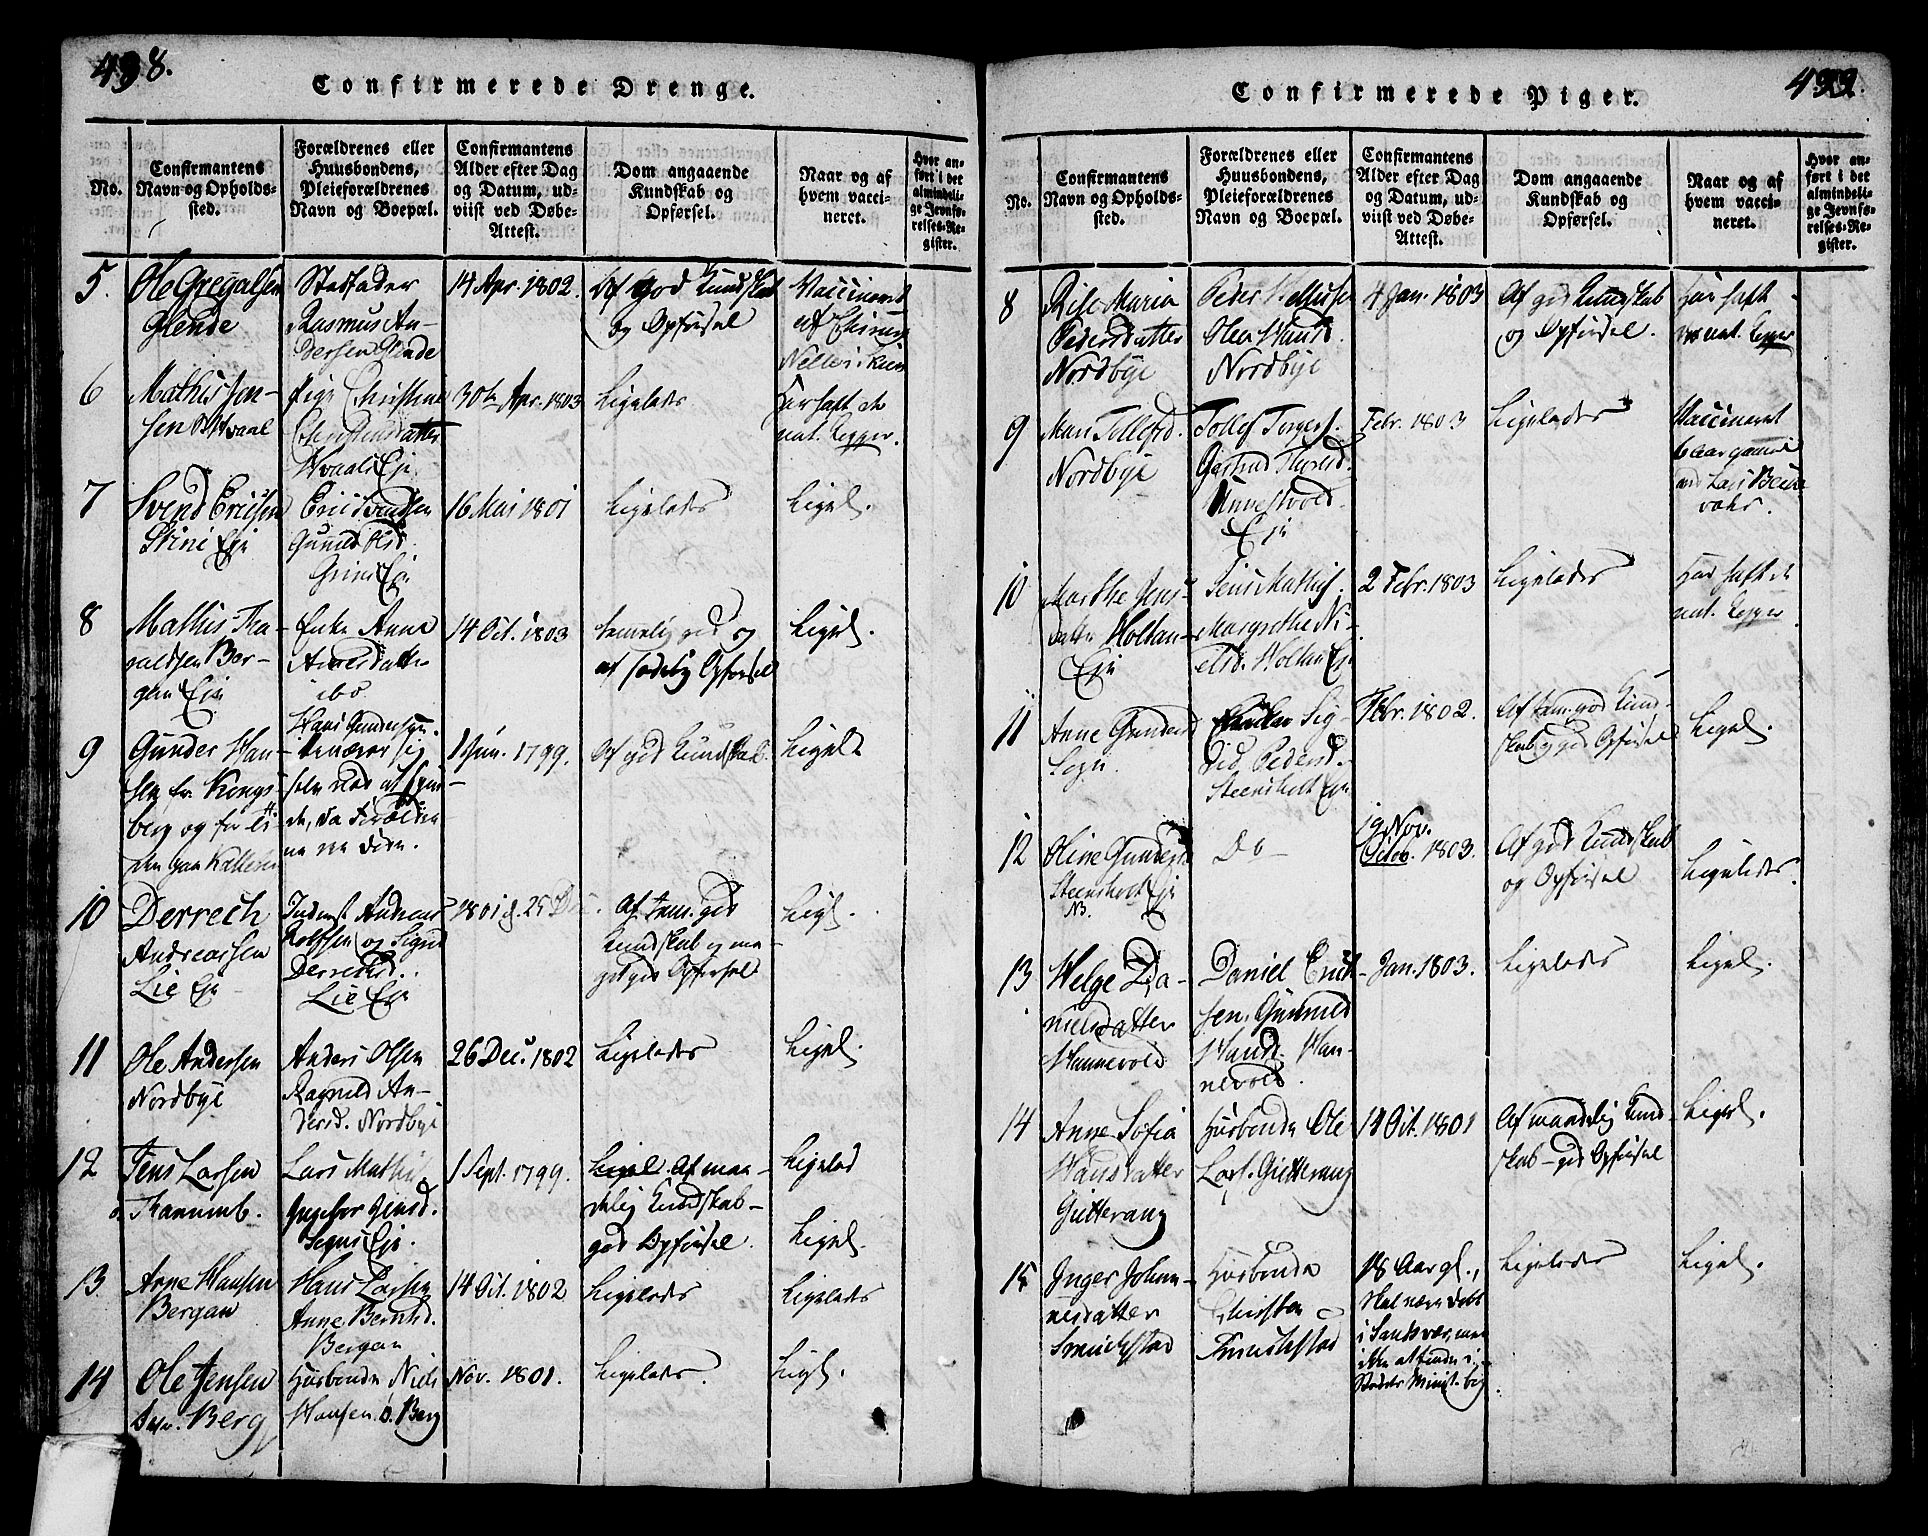 438.
Confirmerede Drenge.
No.
Confirmantens
Navn og Opholds-
sted.
Forældrenes eller
Huusbondens,
Pleieforældrenes
Navn og Boepæl.
Confirmantens
Alder efter Dag
og Datum, ud-
viist ved Døbe-
Attest.
Dom angaaende
Kundskab og
Opførsel.
Naar og af
hvem vacci-
neret.
Hvor an-
ført i det
almindeli-
ge Jevnfø-
relses-Re-
gister.
5.
Ole Gregalsen
Glende
Rasmus An-
dersen Glende
14 Apr. 1802.
Af god Kundskab
og Opførsel
Vaccineret
6
Mathis Jen-
sen Hvaal
Pige Christine
Christensdatter
Hvaals Eje.
30te Apr. 1803
Ligeledes
Har haft de
nat. Kopper.
7
Svend Ericsen
Grini Eje
Eric Svendsen
Gunild Olsd.
Grini Eje
16 Mai 1801
Ligeledes
Ligel.
8
Mathis Tra-
valdsen Ber-
gan Eje
Enke Anne
Arnesdatter
ibd.
14 Oct. 1803
temelig god og
af sædelig Opførsel
Ligel.
9
Gunder Han-
sen fr. Kongs-
berg og for Ti-
den paa
Hans Gundersen.
ernærer sig
selv ved at
de, da Forældre-
ne ere døde.
1 Jun. 1799.
Af god Kundskab.
Ligel.
10
Derrech
Andreassen
Lie Eje
Inderst Andreas
Rolfsen og Sigrid
Derrechsd.
Lie Eje
1801 d. 25 Dec.
Af tem. god
Kundskab og me-
get god Opførsel
Ligl.
11
Ole Andersen
Nordbye
Anders Olsen
Ragnild An-
dersd. Nordbye
26 Dec. 1802
Ligeledes
Ligel.
12
Jens Larsen
Lars Mathis.
Ingebor Jensd.
Segns Eje.
1 Sept. 1799.
Ligel. Af maa-
delig Kundskab-
god Opførsel.
Ligeled
Ligel.
13
Arne Hansen
Bergan
Hans Larsen
Anne Berntsd.
Bergan
14 Oct. 1802
Ligeledes
Ligeledes
14
Ole Jensen
Berg
Husbonde Niels
Hansen o. Berg
Nov. 1801.
Ligeledes.
Ligl.
439.
Confirmerede Piger.
No.
Confirmantens
Navn og Opholds-
sted.
Forældrenes eller
Huusbondens,
Pleieforældrenes
Navn og Boepæl.
Confirmantens
Alder efter Dag
og Datum, ud-
viist ved Døbe-
Attest.
Dom angaaende
Kundskab og
Opførsel.
Naar og af
hvem vacci-
neret.
Hvor an-
ført i det
almindeli-
ge Jevnfø-
relses-Re-
gister.
8
Rise Maria
Pedersdatter
Nordbye
Olea Hansd.
Nordbye
4 Jan. 1803
Af god Kundskab
og Opførsel.
Har haft
nat. Kopper
9
Mari Tollefsd.
Nordbye
Tollef Torgers.
Unnestvold
Eje
Febr. 1803
Ligeledes
Vaccineret
10
Marthe Jens-
datter Holtan-
Eje
Jens Mathis.
Margrethe Ni-
elsd. Holtan Eje
2 Febr. 1803
Ligeledes
Har haft de
nat. Kopper
11
Anne Gundersd
Segn.
Enke Sig-
rid Pedersd.
Steensholt Eje
Febr. 1802.
Af tem. god Kund-
skab og god Opførsel
Ligel.
12
Oline Gundersd.
Steensholt Eje
NB.
Do
19 Nov.
Octob. 1803.
Af god Kundskab
og Opførsel
Ligeledes.
13
Helge Da-
nielsdatter
Hannevold
Daniel Erick-
sen, Gunnild
Hansd. Han-
nevold.
Jan. 1803.
Ligeledes
Ligel.
14
Anne Sofia
Hansdatter
Gutterang
Husbonde Ole
Lars. Gutterang
14 Oct. 1801
Af maadelig Kund-
skab- god Opførsel
Ligel.
15
Inger Johan-
nesdatter
Husbonde
Christen
18 Aar gl.,
skal være døbt
i Sandsvær, men
ikke at finde i
Stedets Minist. bog
Ligeledes
Ligel.